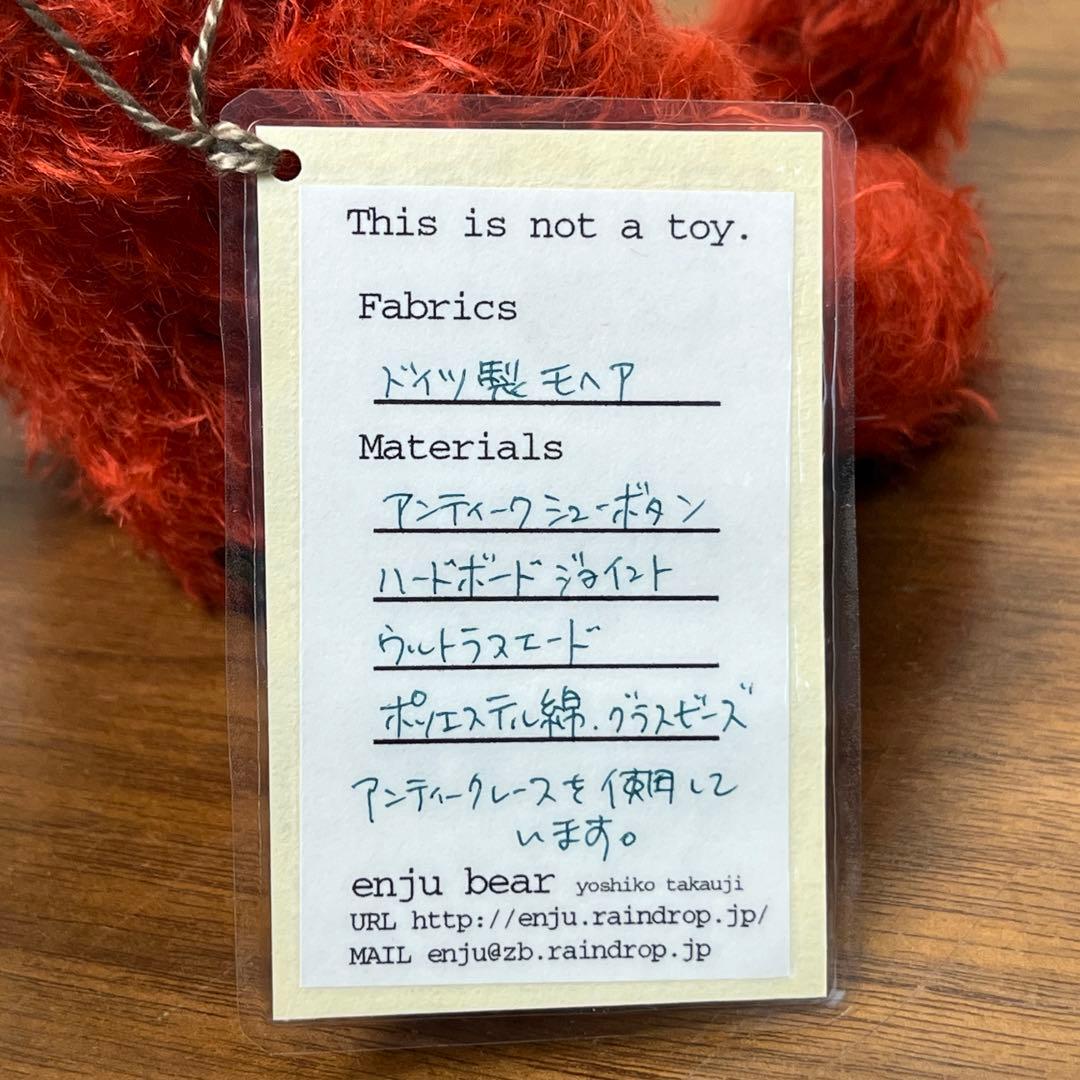 This is not a toy.
Fabrics
ドイツ製モヘア
Materials
アンティークシューボタン
ハードボードジョイント
ウルトラスエード
ポリエステル綿.グラスビーズ
アンティークレースを使用して
います。
enju bear yoshiko takauji
URL http://enju.raindrop.jp/
MAIL enju@zb.raindrop.jp